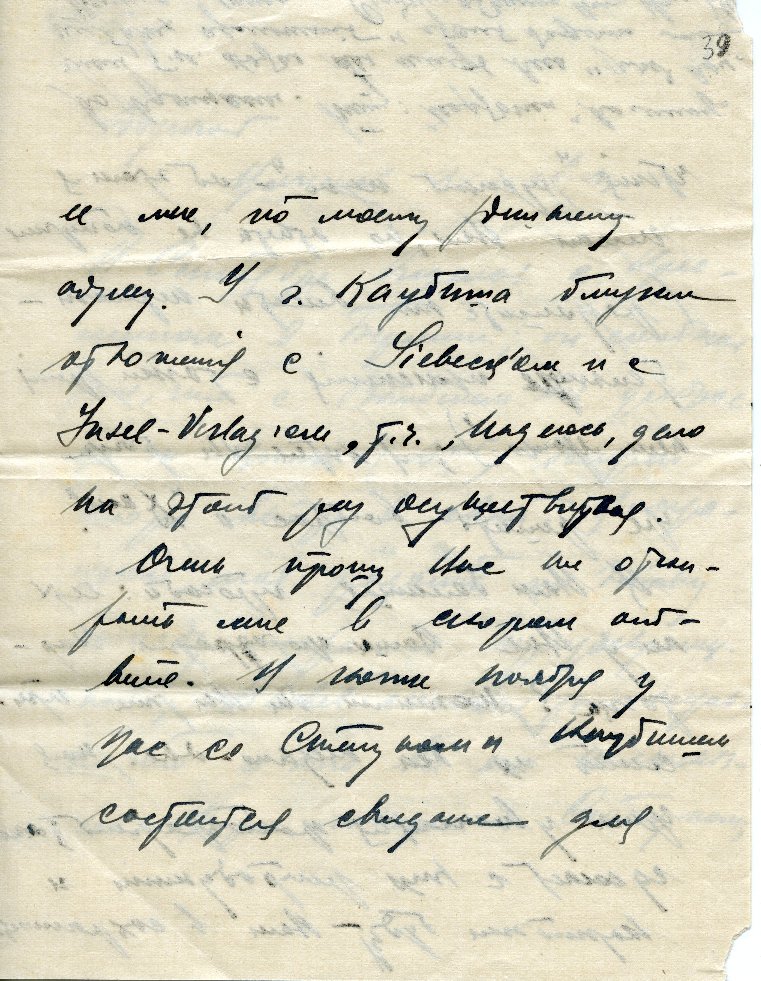 39
ее мне, по моему здешнему
адресу. У г. Каубиша близкие
отношения с Siebeck'ом и с
Insel-Verlag'ом, т.ч., надеюсь, дело
на этот раз осуществится.
Очень прошу Вас не отка-
зать мне в скором от-
вете. В конце ноября у
нас со Степуном и Каубишем
состоится свидание для